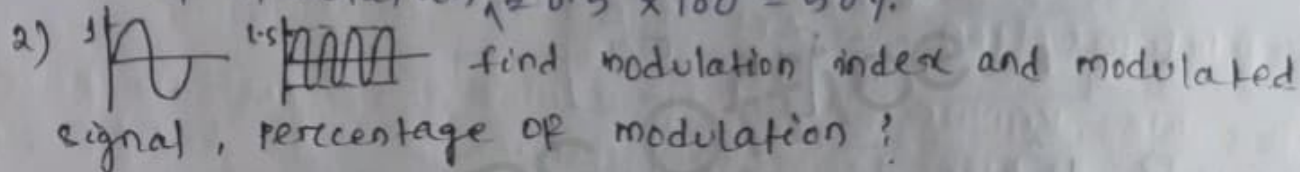 = 0.5 × 100 = 50%.
2) 1 1.5 find modulation index and modulated
signal, percentage of modulation ?